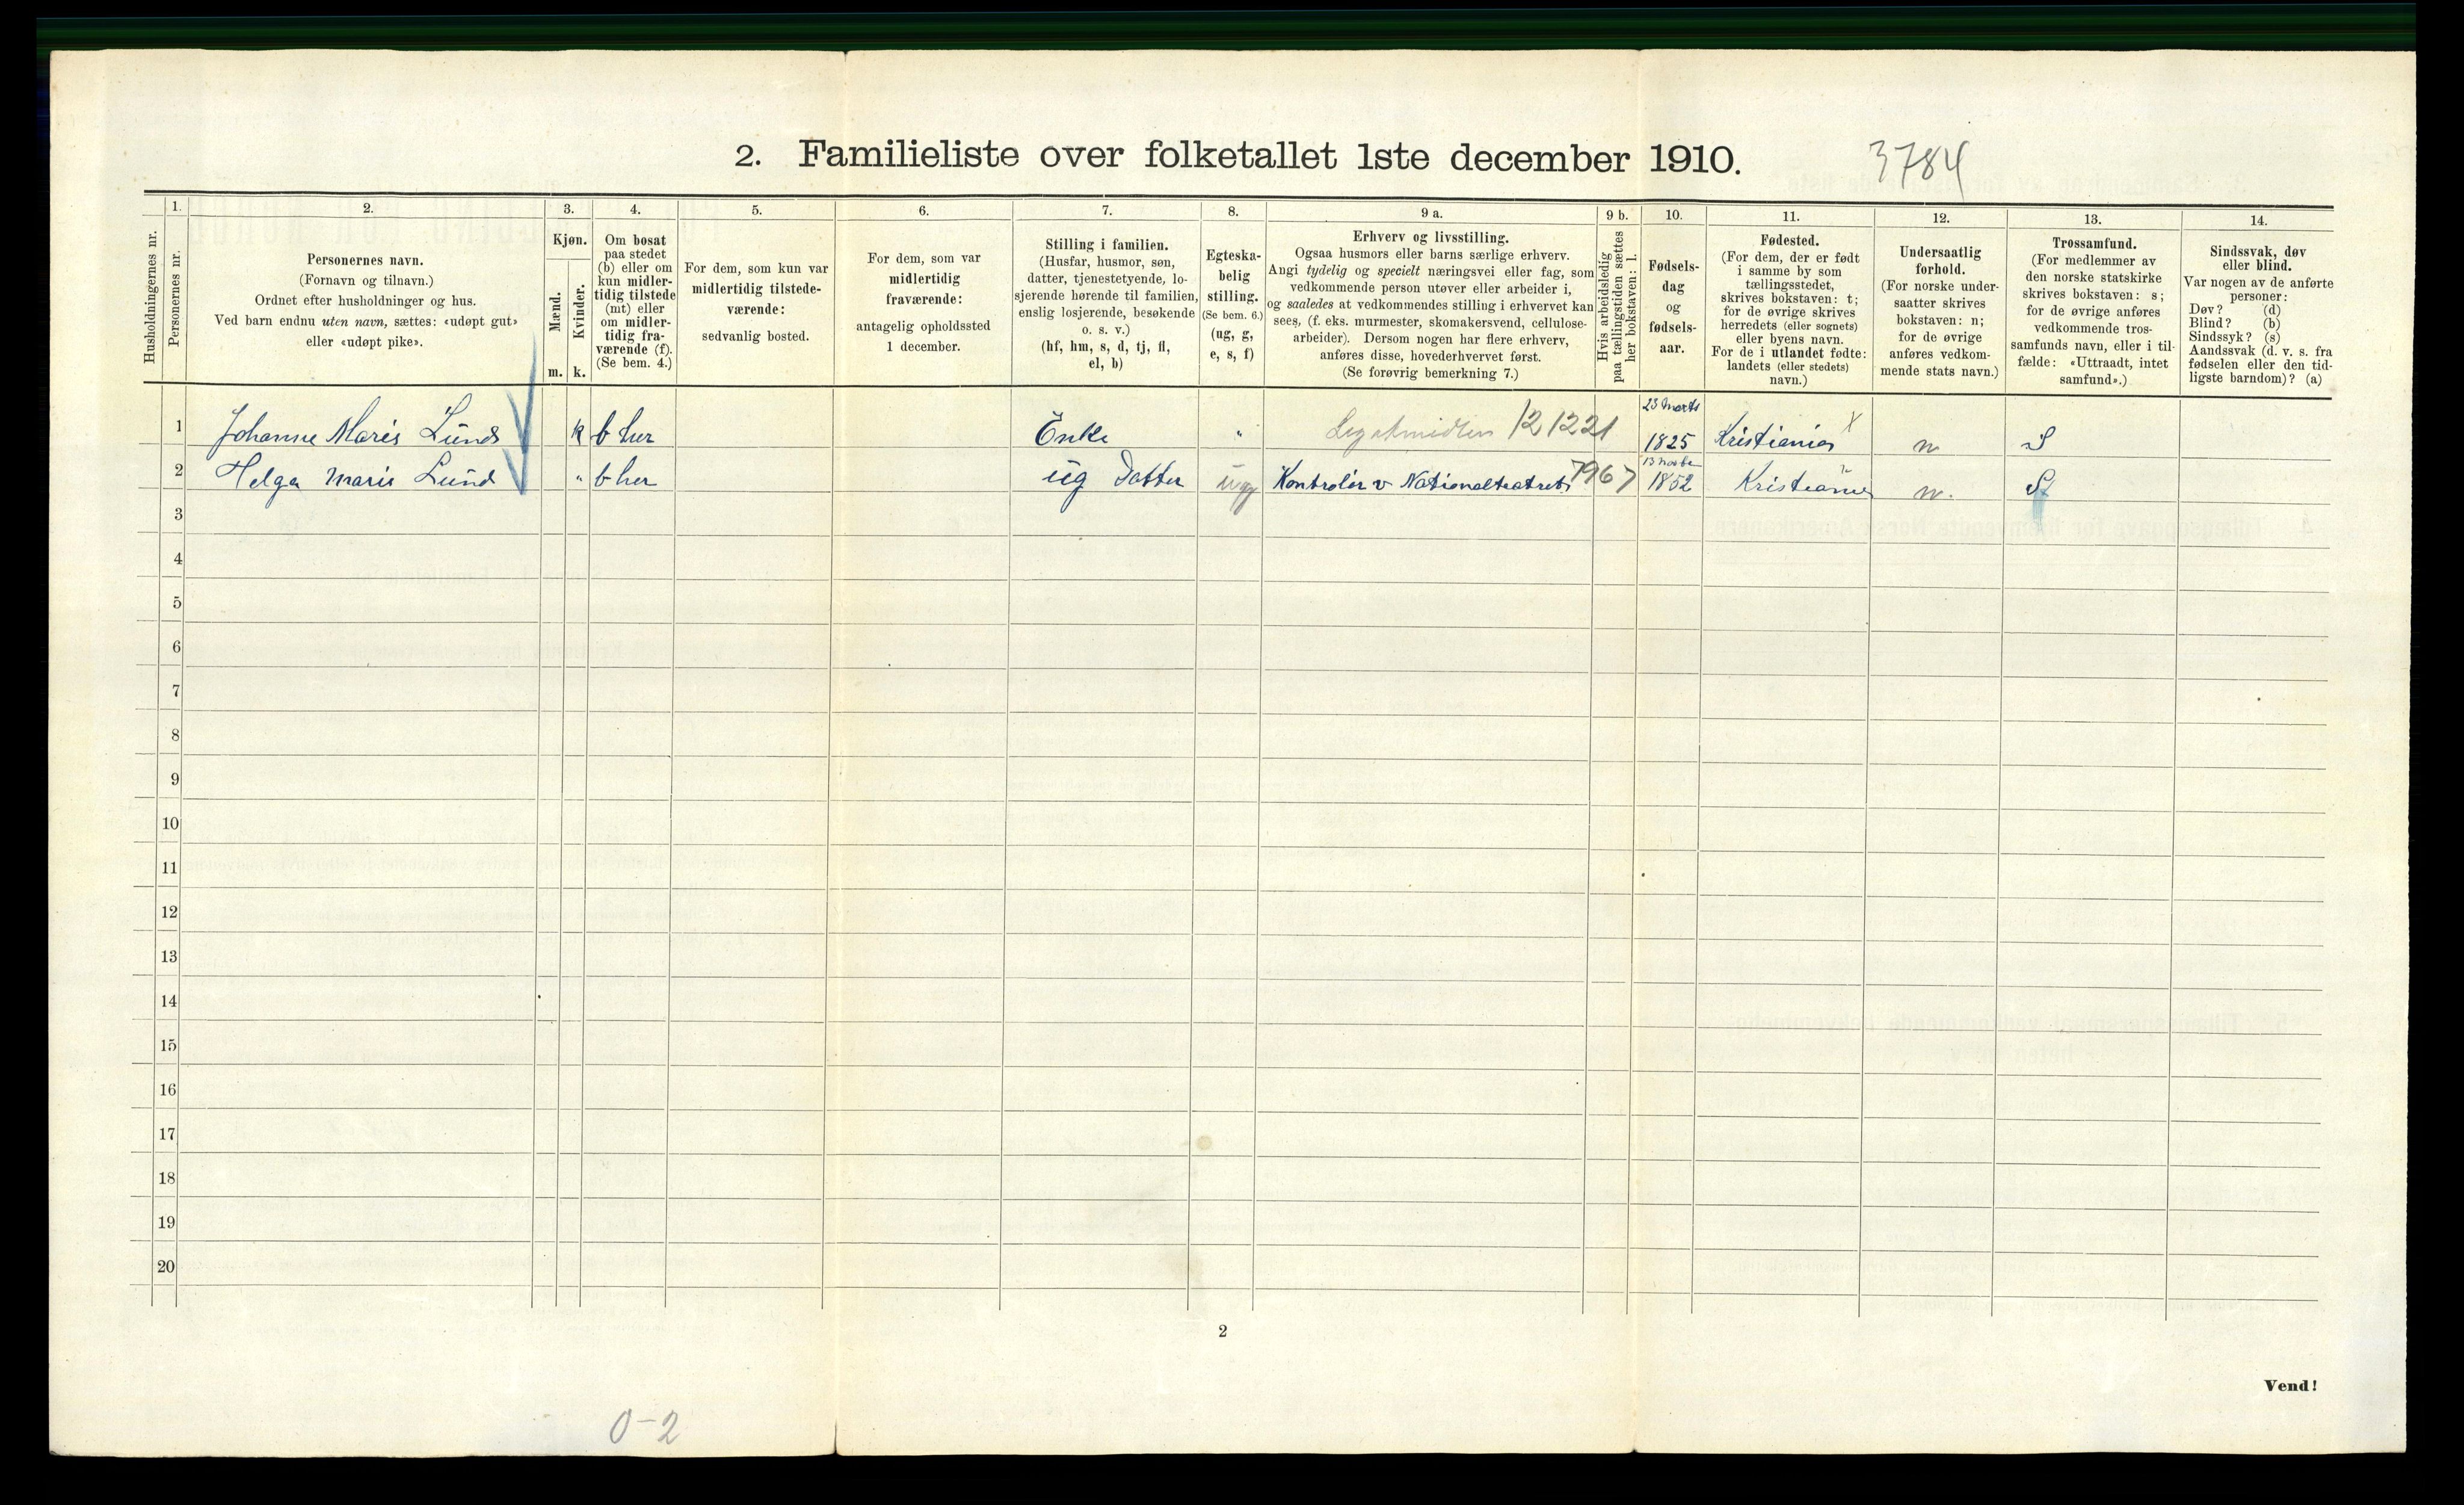 2. Familieliste over folketallet 1ste december 1910.
3784
Husholdningernes nr.
1.
Personernes nr.
2.
Personernes navn.
(Fornavn og tilnavn.)
Ordnet efter husholdninger og hus.
Ved barn endnu uten navn, sættes: «udøpt gut»
eller «udøpt pike».
3.
Kjøn.
Mænd.
Kvinder.
m. k.
4.
Om bosat
paa stedet
(b) eller om
kun midler-
tidig tilstede
(mt) eller
om midler-
tidig fra-
værende (f).
(Se bem. 4.)
5.
For dem, som kun var
midlertidig tilstede-
værende:
sedvanlig bosted.
6.
For dem, som var
midlertidig
fraværende:
antagelig opholdssted
1 december.
7.
Stilling i familien.
(Husfar, husmor, søn,
datter, tjenestetyende, lo-
sjerende hørende til familien,
enslig losjerende, besøkende
o. s. v.)
(hf, hm, s, d, tj, fl,
el, b)
8.
Egteska-
belig
stilling.
(Se bem. 6.)
(ug, g,
e, s, f)
9 a.
Erhverv og livsstilling.
Ogsaa husmors eller barns særlige erhverv.
Angi tydelig og specielt næringsvei eller fag, som
vedkommende person utøver eller arbeider i,
og saaledes at vedkommendes stilling i erhvervet kan
sees, (f. eks. murmester, skomakersvend, cellulose-
arbeider). Dersom nogen har flere erhverv,
anføres disse, hovederhvervet først.
(Se forøvrig bemerkning 7.)
9 b.
Hvis arbeidsledig
paa tællingstiden sættes
her bokstaven: l.
10.
Fødsels-
dag
og
fødsels-
aar.
11.
Fødested.
(For dem, der er født
i samme by som
tællingsstedet,
skrives bokstaven: t;
for de øvrige skrives
herredets (eller sognets)
eller byens navn.
For de i utlandet fødte:
landets (eller stedets)
navn.)
12.
Undersaatlig
forhold.
(For norske under-
saatter skrives
bokstaven: n;
for de øvrige
anføres vedkom-
mende stats navn.)
13.
Trossamfund.
(For medlemmer av
den norske statskirke
skrives bokstaven: s;
for de øvrige anføres
vedkommende tros-
samfunds navn, eller i til-
fælde: «Uttraadt, intet
samfund».)
14.
Sindssvak, døv
eller blind.
Var nogen av de anførte
personer:
Døv? (d)
Blind? (b)
Sindssyk? (s)
Aandssvak (d. v. s. fra
fødselen eller den tid-
ligste barndom)? (a)
1 Johanne Marie Lund k b her Enke " Legatmidler 12 1221 23 Marts 1825 Kristiania X n S
2 Helga Marie Lund " b her ug Datter ug Kontrolör v Nationalteatret 7967 1852 Kristiania n. S
3
4
5
6
7
8
9
10
11
12
13
14
15
16
17
18
19
20
2
Vend!
0-2